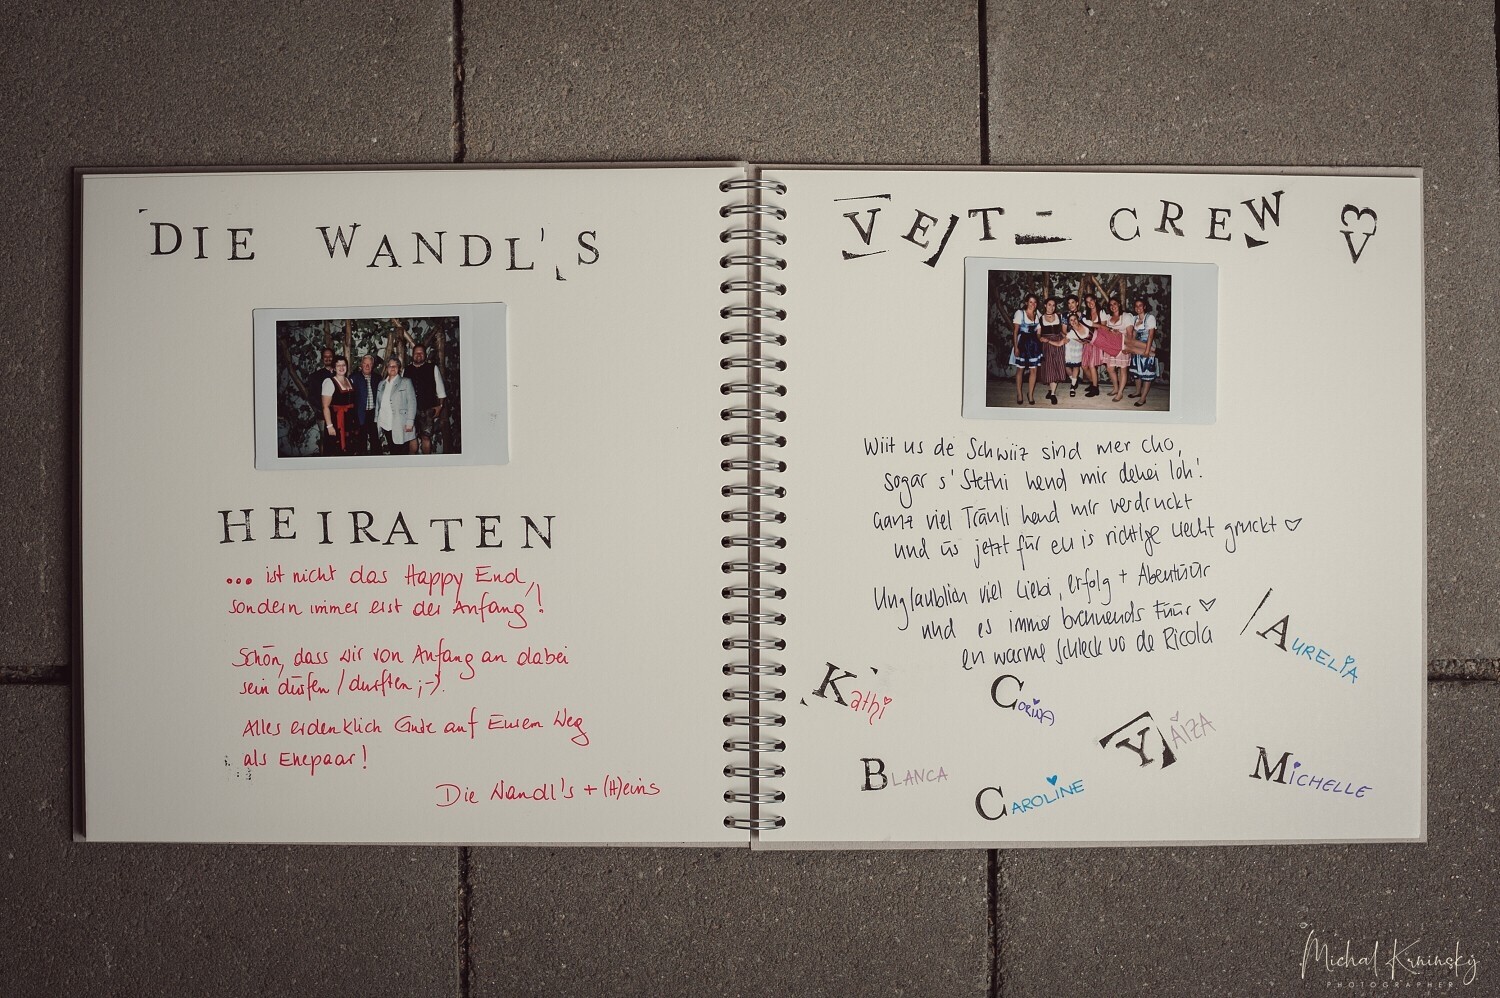 DIE WANDL'S
HEIRATEN
... ist nicht das Happy End,
sondern immer erst der Anfang!
Schön, dass wir von Anfang an dabei
sein dürfen / durften ;-).
Alles erdenklich Gute auf Eurem Weg
als Ehepaar!
Die Wandl's + (H)eins
VET - CREW <3
Wiit us de Schwiiz sind mer cho,
sogar s' Stethi hend mir dehei loh!
Ganz viel Tränli hend mir verdruckt
und üs jetzt für eu is richtige Liecht gruckt ♡
Unglaublich viel Liebi, erfolg + Abentüür
und es immer brennends Füür ♡
en warme Schleck vo de Ricola
AURELIA
Kathi
CORINA
YAIZA
BLANCA
CAROLINE
MICHELLE
Michal Krninský
PHOTOGRAPHER